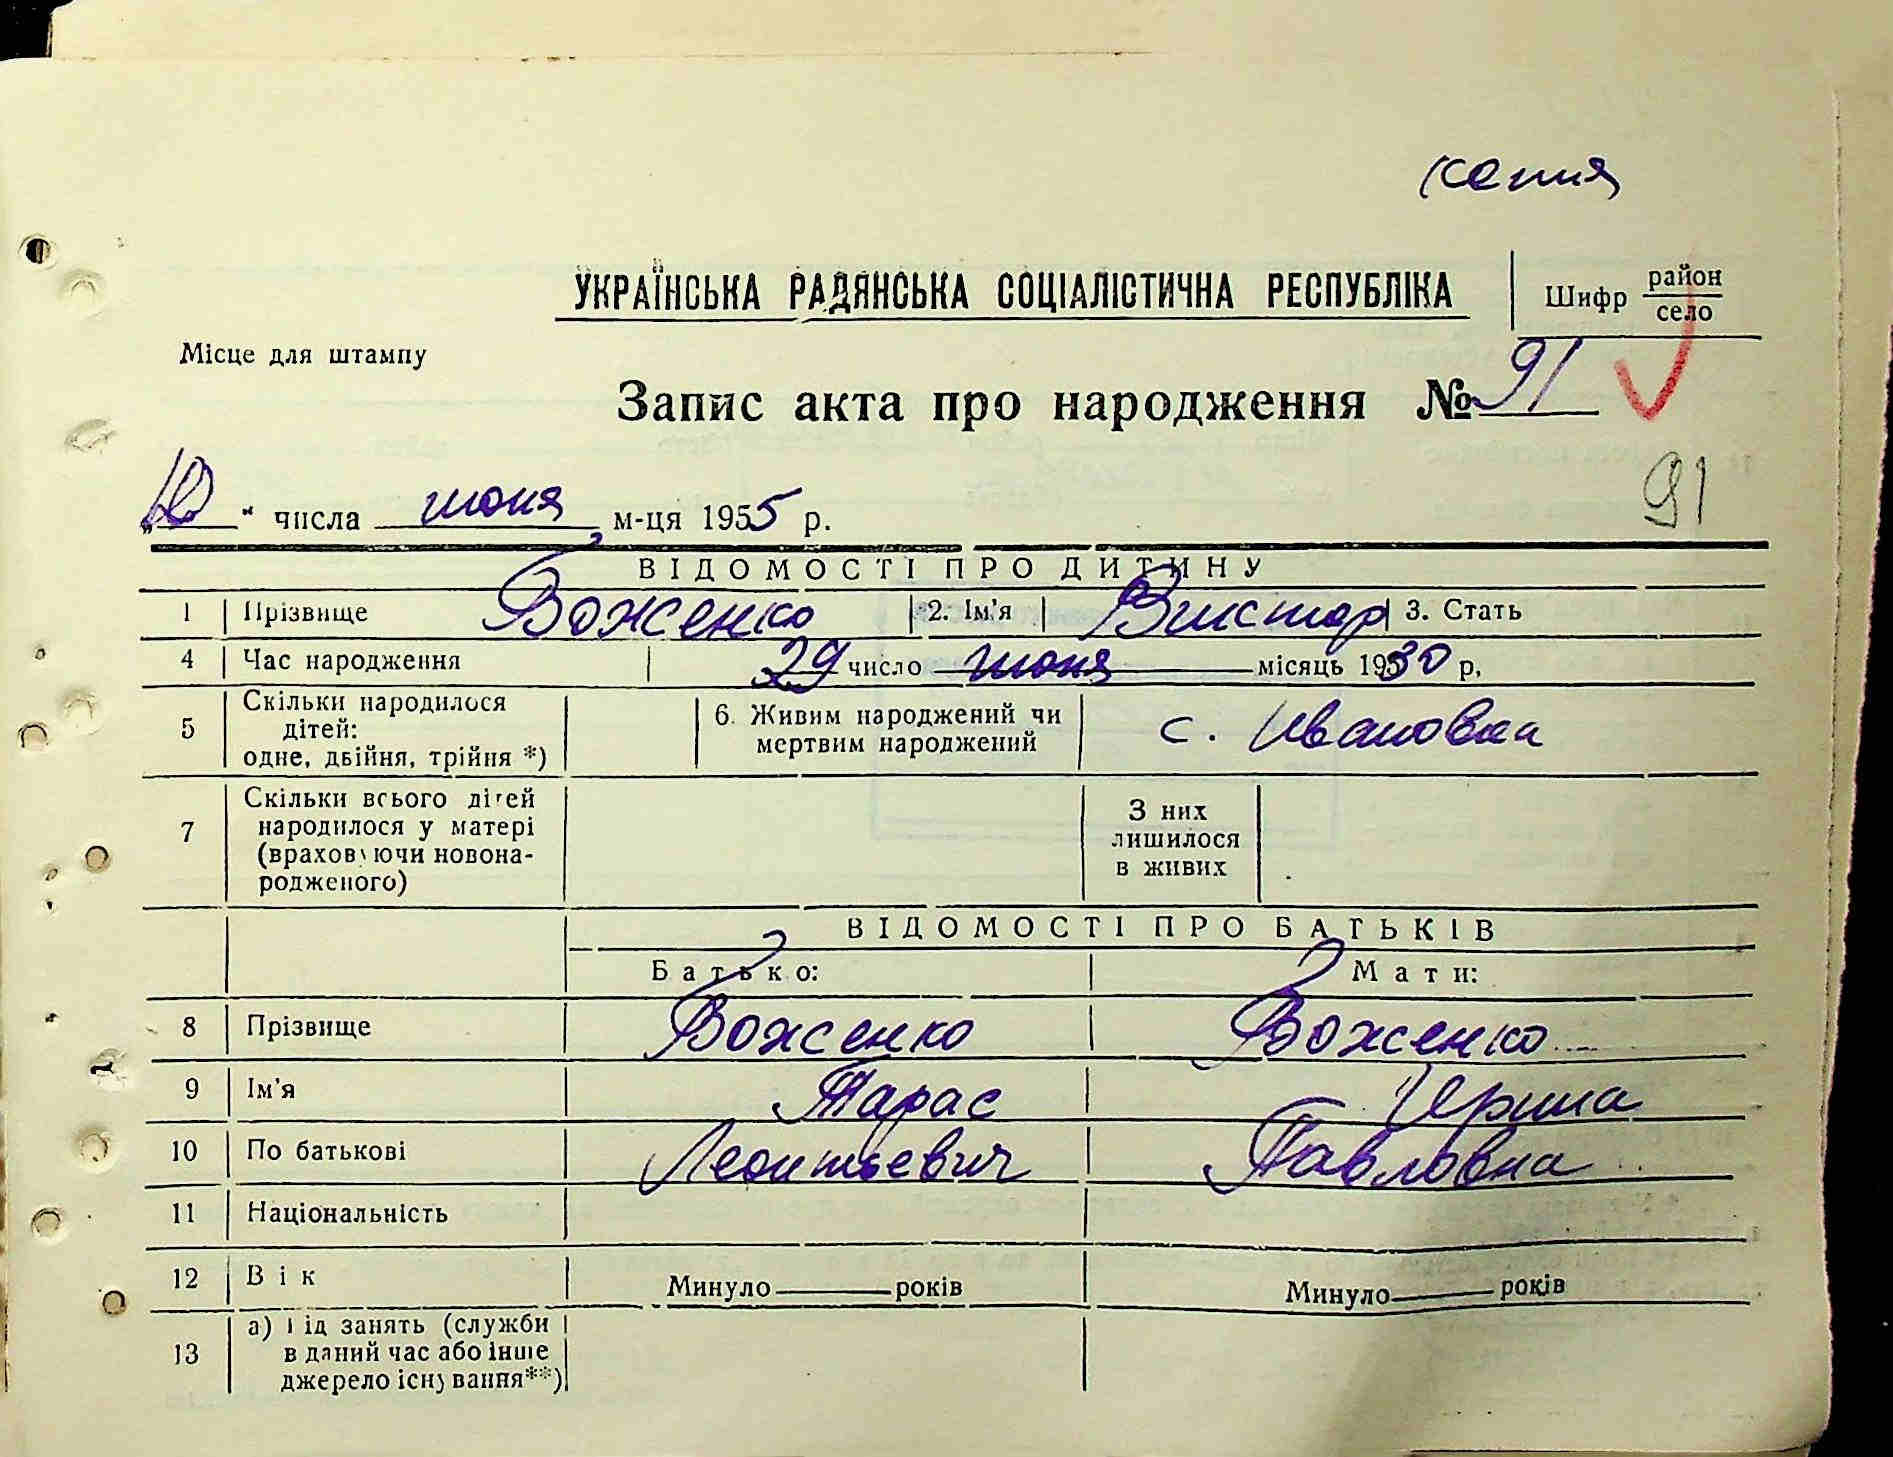 копия
УКРАЇНСЬКА РАДЯНСЬКА СОЦІАЛІСТИЧНА РЕСПУБЛІКА
Шифр район
село
Місце для штампу
Запис акта про народження № 91
91
„10“ числа июня м-ця 1955 р.
ВІДОМОСТІ ПРО ДИТИНУ
1 Прізвище Боженко 2. Ім'я Виктор 3. Стать
4 Час народження 29 число июня місяць 1930 р.
5 Скільки народилося дітей: одне, двійня, трійня *) 6. Живим народжений чи мертвим народжений с. Ивановка
7 Скільки всього дітей народилося у матері (враховуючи новонародженого) З них лишилося в живих
ВІДОМОСТІ ПРО БАТЬКІВ
Батько: Мати:
8 Прізвище Боженко Боженко
9 Ім'я Тарас Ирина
10 По батькові Леонтьевич Павловна
11 Національність
12 Вік Минуло років Минуло років
13 а) Під занять (служби в даний час або інше джерело існування**)